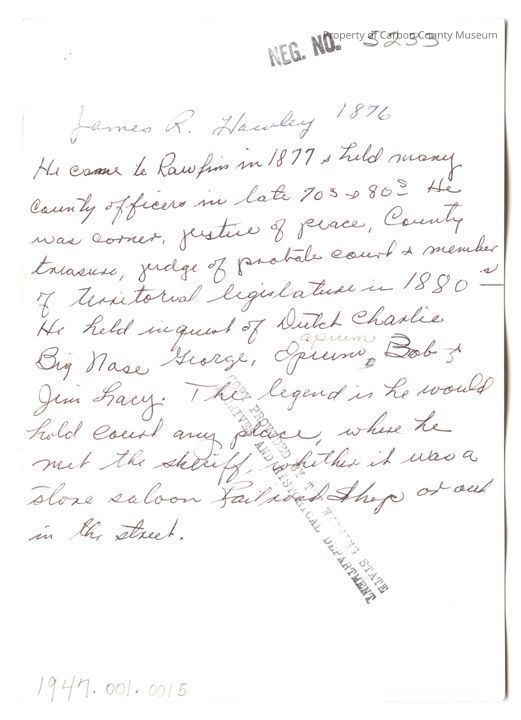 Property of Carbon County Museum
NEG. NO. 5233
James R. Hawley 1876
He came to Rawlins in 1877 & held many
county officers in late 70s & 80s He
was corner, justice of peace, County
treasure, judge of probate court & member
of territorial legislature in 1880 s
He held inquest of Dutch Charlie
opium
Big Nase George, Opium Bob &
Jim Lacy. The legend is he would
hold court any place, where he
met the sheriff, whither it was a
store saloon Railroad Shop or out
in the street.
COPY PROVIDED BY THE WYOMING STATE
ARCHIVES AND HISTORICAL DEPARTMENT
1947.001.0015